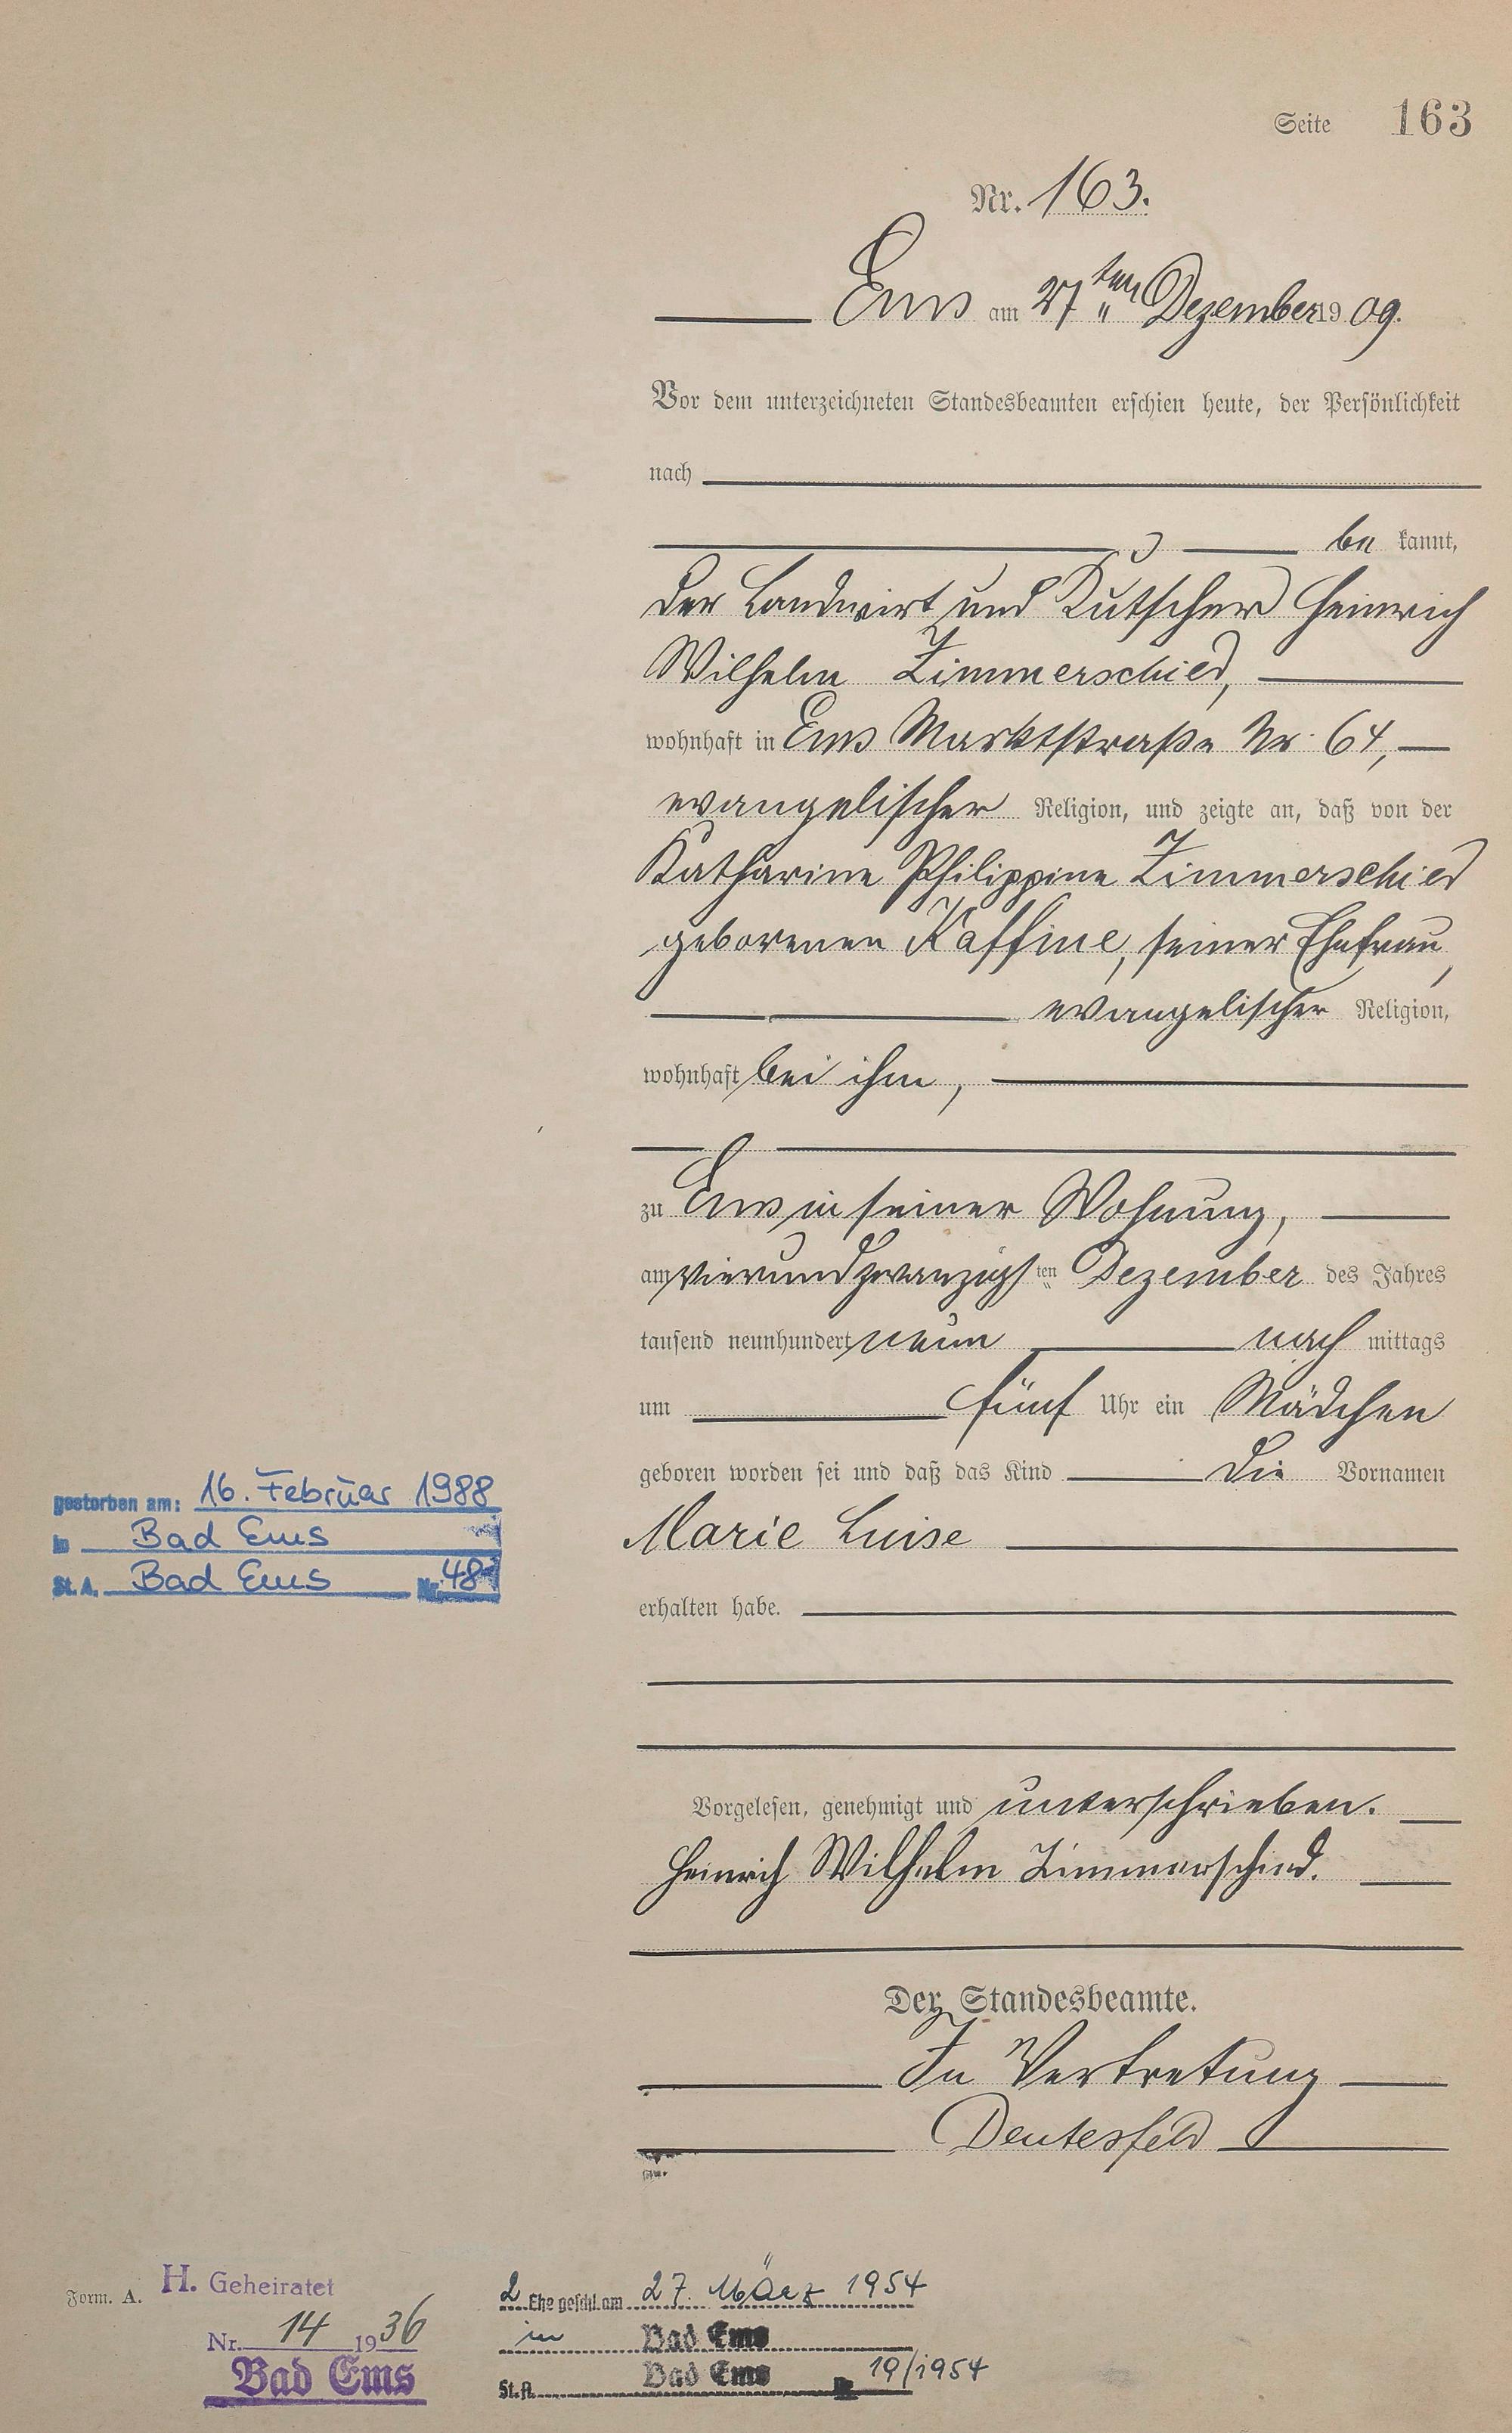 Seite 163
Nr. 163.
Ems am 27ten Dezember 1909.
Vor dem unterzeichneten Standesbeamten erschien heute, der Persönlichkeit
nach
be kannt,
der Landwirt und Kutscher Heinrich
Wilhelm Zimmerschied,
wohnhaft in Ems Marktstraße Nr. 64,
evangelischer Religion, und zeigte an, daß von der
Katharine Philippine Zimmerschied
geborenen Kaffine, seiner Ehefrau,
evangelischer Religion,
wohnhaft bei ihm,
zu Ems in seiner Wohnung,
am vierundzwanzigsten Dezember des Jahres
tausend neunhundert neun nach mittags
um fünf Uhr ein Mädchen
geboren worden sei und daß das Kind die Vornamen
Marie Luise
erhalten habe.
Vorgelesen, genehmigt und unterschrieben.
Heinrich Wilhelm Zimmerschied.
Der Standesbeamte.
In Vertretung
Deutesfeld
gestorben am: 16. Februar 1988
in Bad Ems
St. A. Bad Ems Nr. 48
Form. A.
H. Geheiratet
Nr. 14 1936
Bad Ems
2. Ehe geschl. am 27. März 1954
in Bad Ems
St. A. Bad Ems Nr. 19/1954